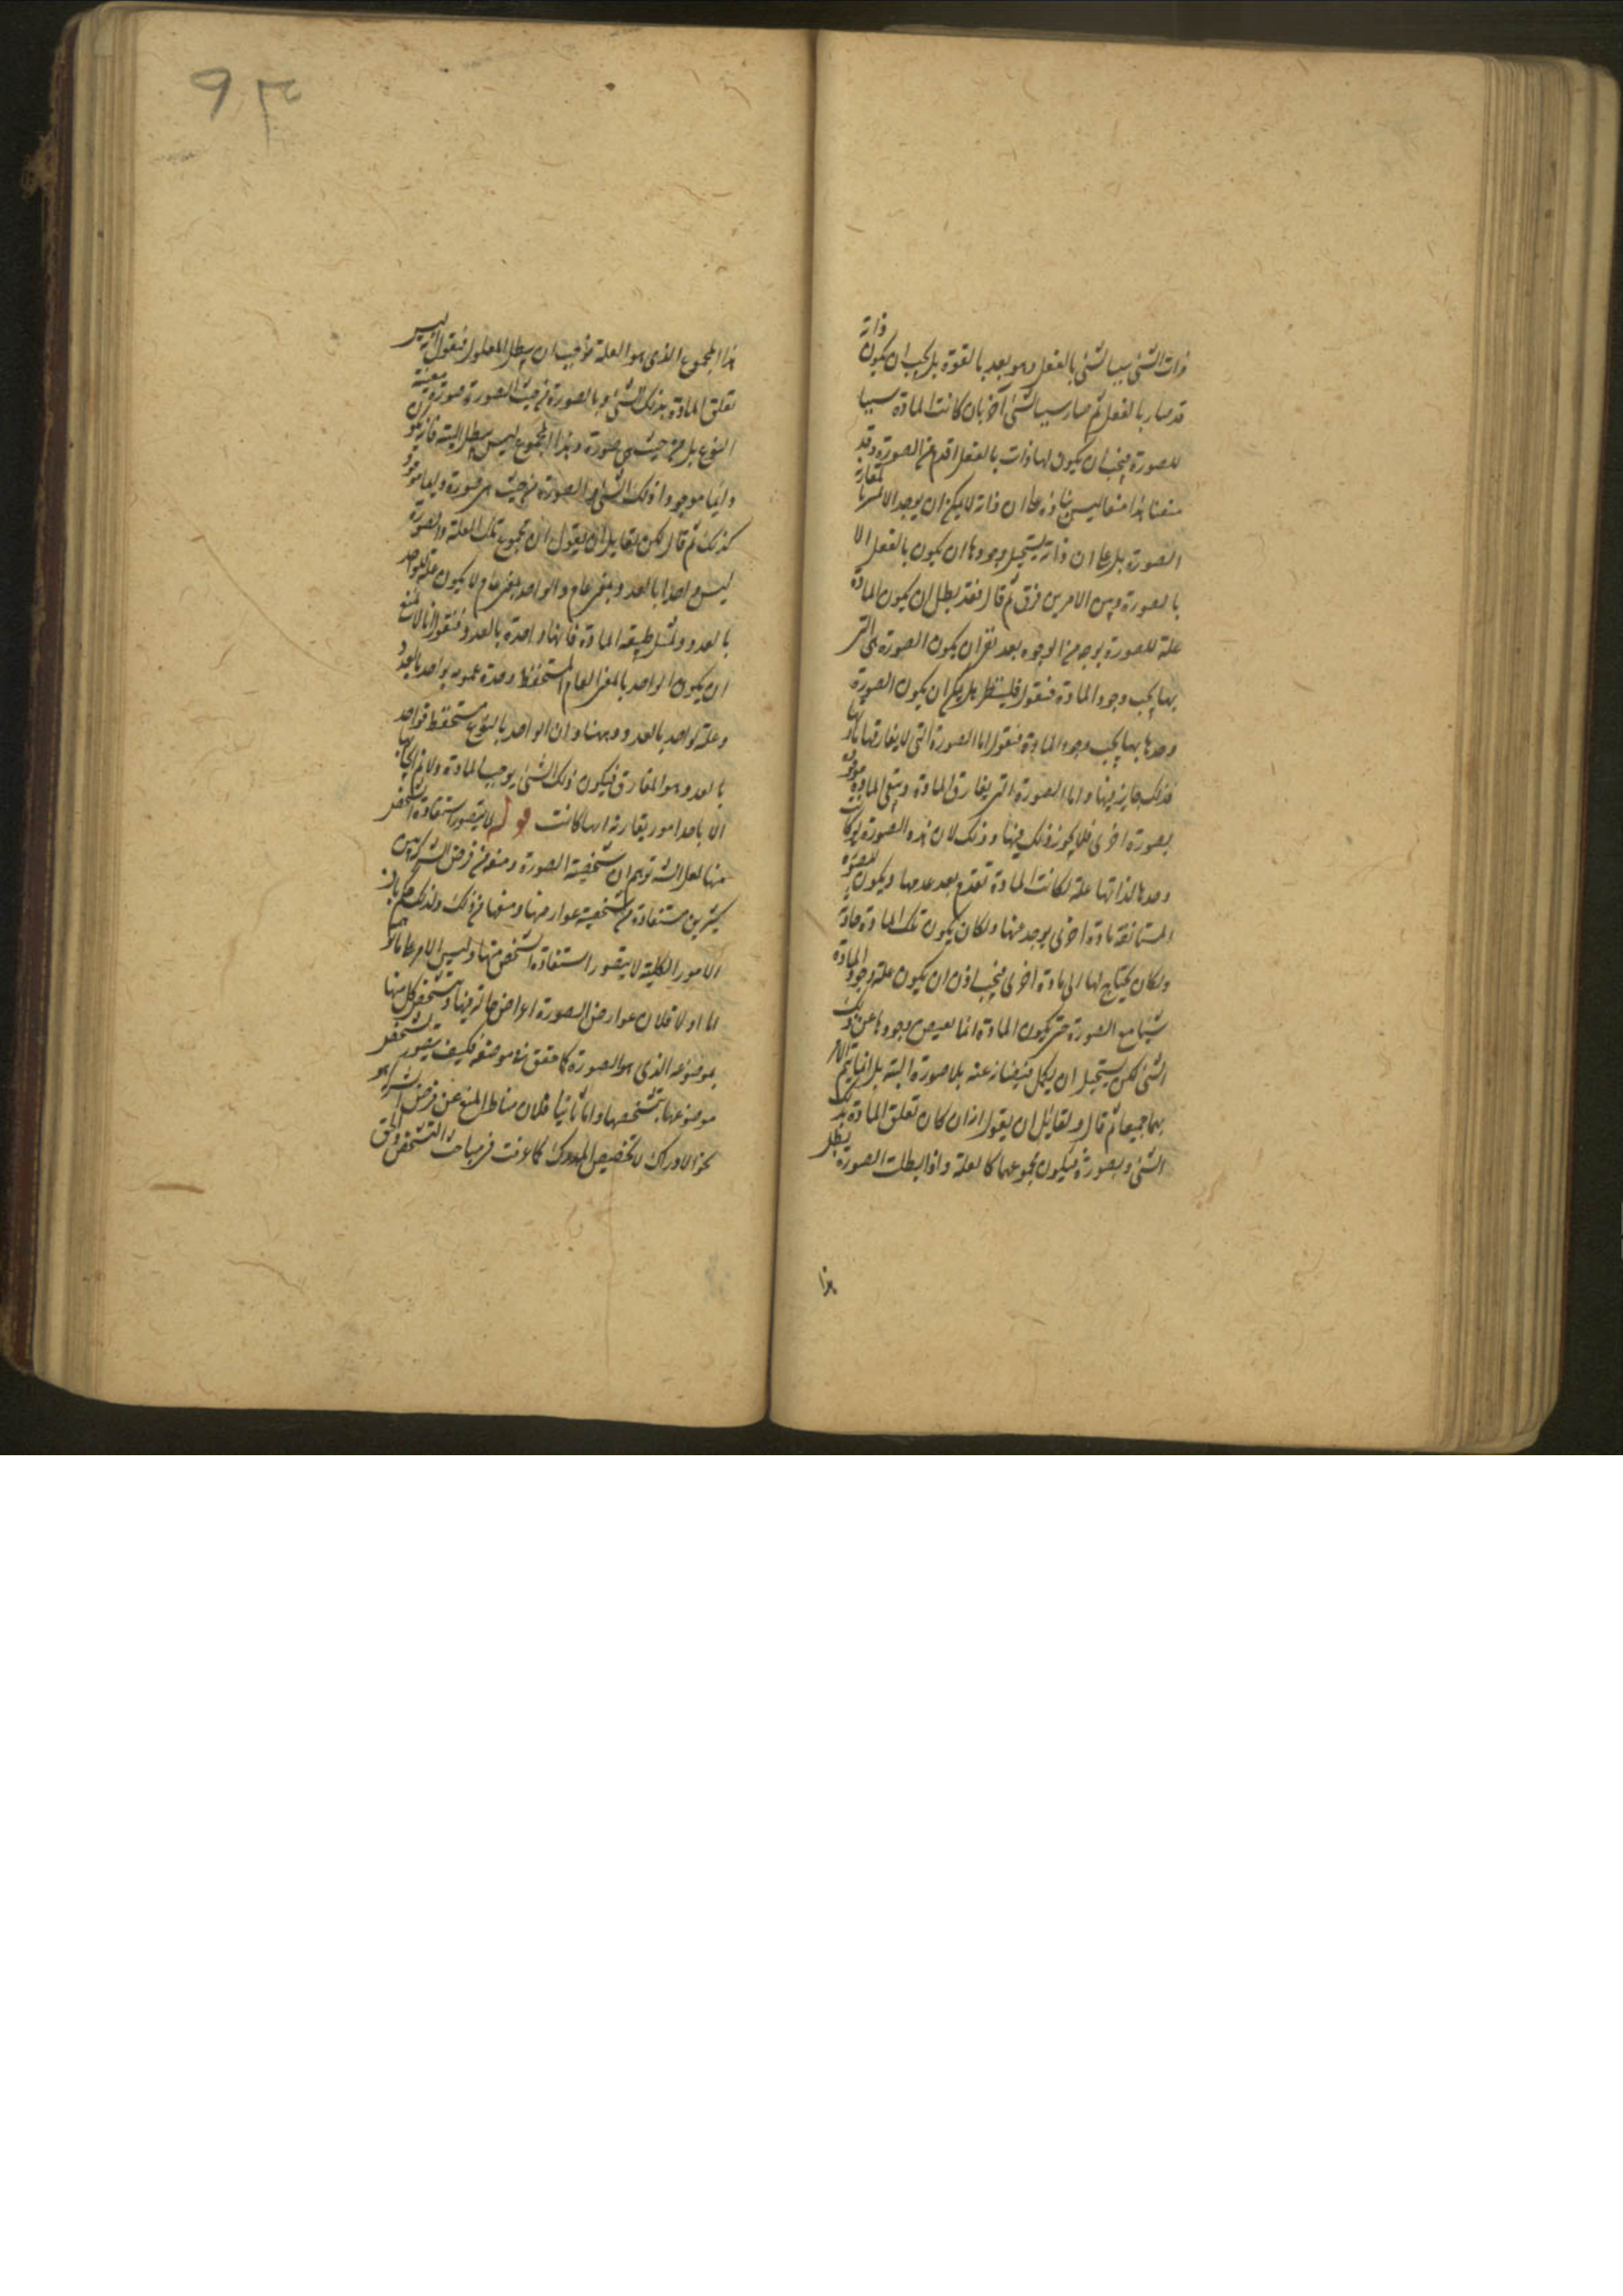 ذات الشئ سببا لشئ بالفعل وهو بعد بالقوة بل يجب ان يكون ذاته
قد صار بالفعل ثم صار سببا لشئ آخر بان كانت المادة سببا
للصورة فيجب ان يكون لها ذات بالفعل اقدم من الصورة وقد
منعنا هذا منعا ليس بناؤه على ان ذاته لا يمكن ان يوجد الا
الصورة بل على ان ذاته يستحيل وجودها ان يكون بالفعل الا
بالصورة وبين الامرين فرق ثم قال فقد بطل ان يكون المادة
علة للصورة بوجه من الوجوه بعد بقى ان يكون الصورة هى التى
بها يجب وجود المادة فنقول فلينظر هل يمكن ان يكون الصورة
وحدها بها يجب وجود المادة فنقول اما الصورة التى لا يفارقها مادتها
فذلك جايز فيها واما الصورة التى يفارق المادة ويبقى المادة موجودة
بصورة اخرى فلا يجوز ذلك فيها وذلك لان هذه الصورة لو كانت
وحدها لذاتها علة لكانت المادة تعدم بعد عدمها ويكون للصورة
المستانفة مادة اخرى يوجد منها ولكان يكون تلك المادة حادثة
ولكان يحتاج لها الى مادة اخرى فيجب اذن ان يكون علة وجود المادة
شيئا مع الصورة حتى يكون المادة انما يفيض وجودها عن ذلك
الشئ لكن يستحيل ان يكمل فيضانه عنه بلا صورة البتة بل انما يتم الامر
بهما جميعا ثم قال ولقائل ان يقول ان كان تعلق المادة بذلك
الشئ وبصورة فيكون مجموعهما كالعلة واذا بطلت الصورة بطل
هذا
هذا المجموع الذى هو العلة فوجب ان يبطل المعلول فنقول انه ليس
تعلق المادة بذلك الشئ وبالصورة من حيث الصورة صورة معينة
النوع بل من حيث هى صورة وهذا المجموع ليس يبطل البتة فانه يكون
دايما موجودا ذلك الشئ والصورة من حيث هى صورة
كذلك ثم قال لكن لقايل ان يقول ان مجموع تلك العلة والصورة
ليس واحدا بالعدد وبمعنى عام والواحد بمعنى عام لا يكون علة للواحد
بالعدد ولمثل طبيعة المادة فانها واحدة بالعدد فنقول انا لا نمنع
ان يكون الواحد بالمعنى العام المستحفظ وحدة عمومه بواحد بالعدد
وعلة لواحد بالعدد وههنا وان الواحد بالنوع مستحفظ بواحد
بالعدد وهو المفارق فيكون ذلك الشئ يوجب المادة ولا يتم ايجابها
الا باحد امور يقارنه ايها كانت قوله لا يتصور استفادة التشخص
منها لعل الشه توهم ان شخصية الصورة ومنعه من فرض الشركة بين
كثيرين مستفادة من شخصية عوارضها ومنعها من ذلك ولذلك حكم بان
الامور الكلية لا يتصور استفادة الشخص منها وليس الامر على ما
اما اولا فلان عوارض الصورة اعراض حالة فيها وتشخص كل منها
بموضوعه الذى هو الصورة كما حقق فى موضعه فكيف يتصور تشخص
موضوعها بتشخصها واما ثانيا فلان مناط المنع عن فرض الشركة هو
نحو الادراك لا تخصيص المدرك كما عرفت فى مباحث التشخص والحق